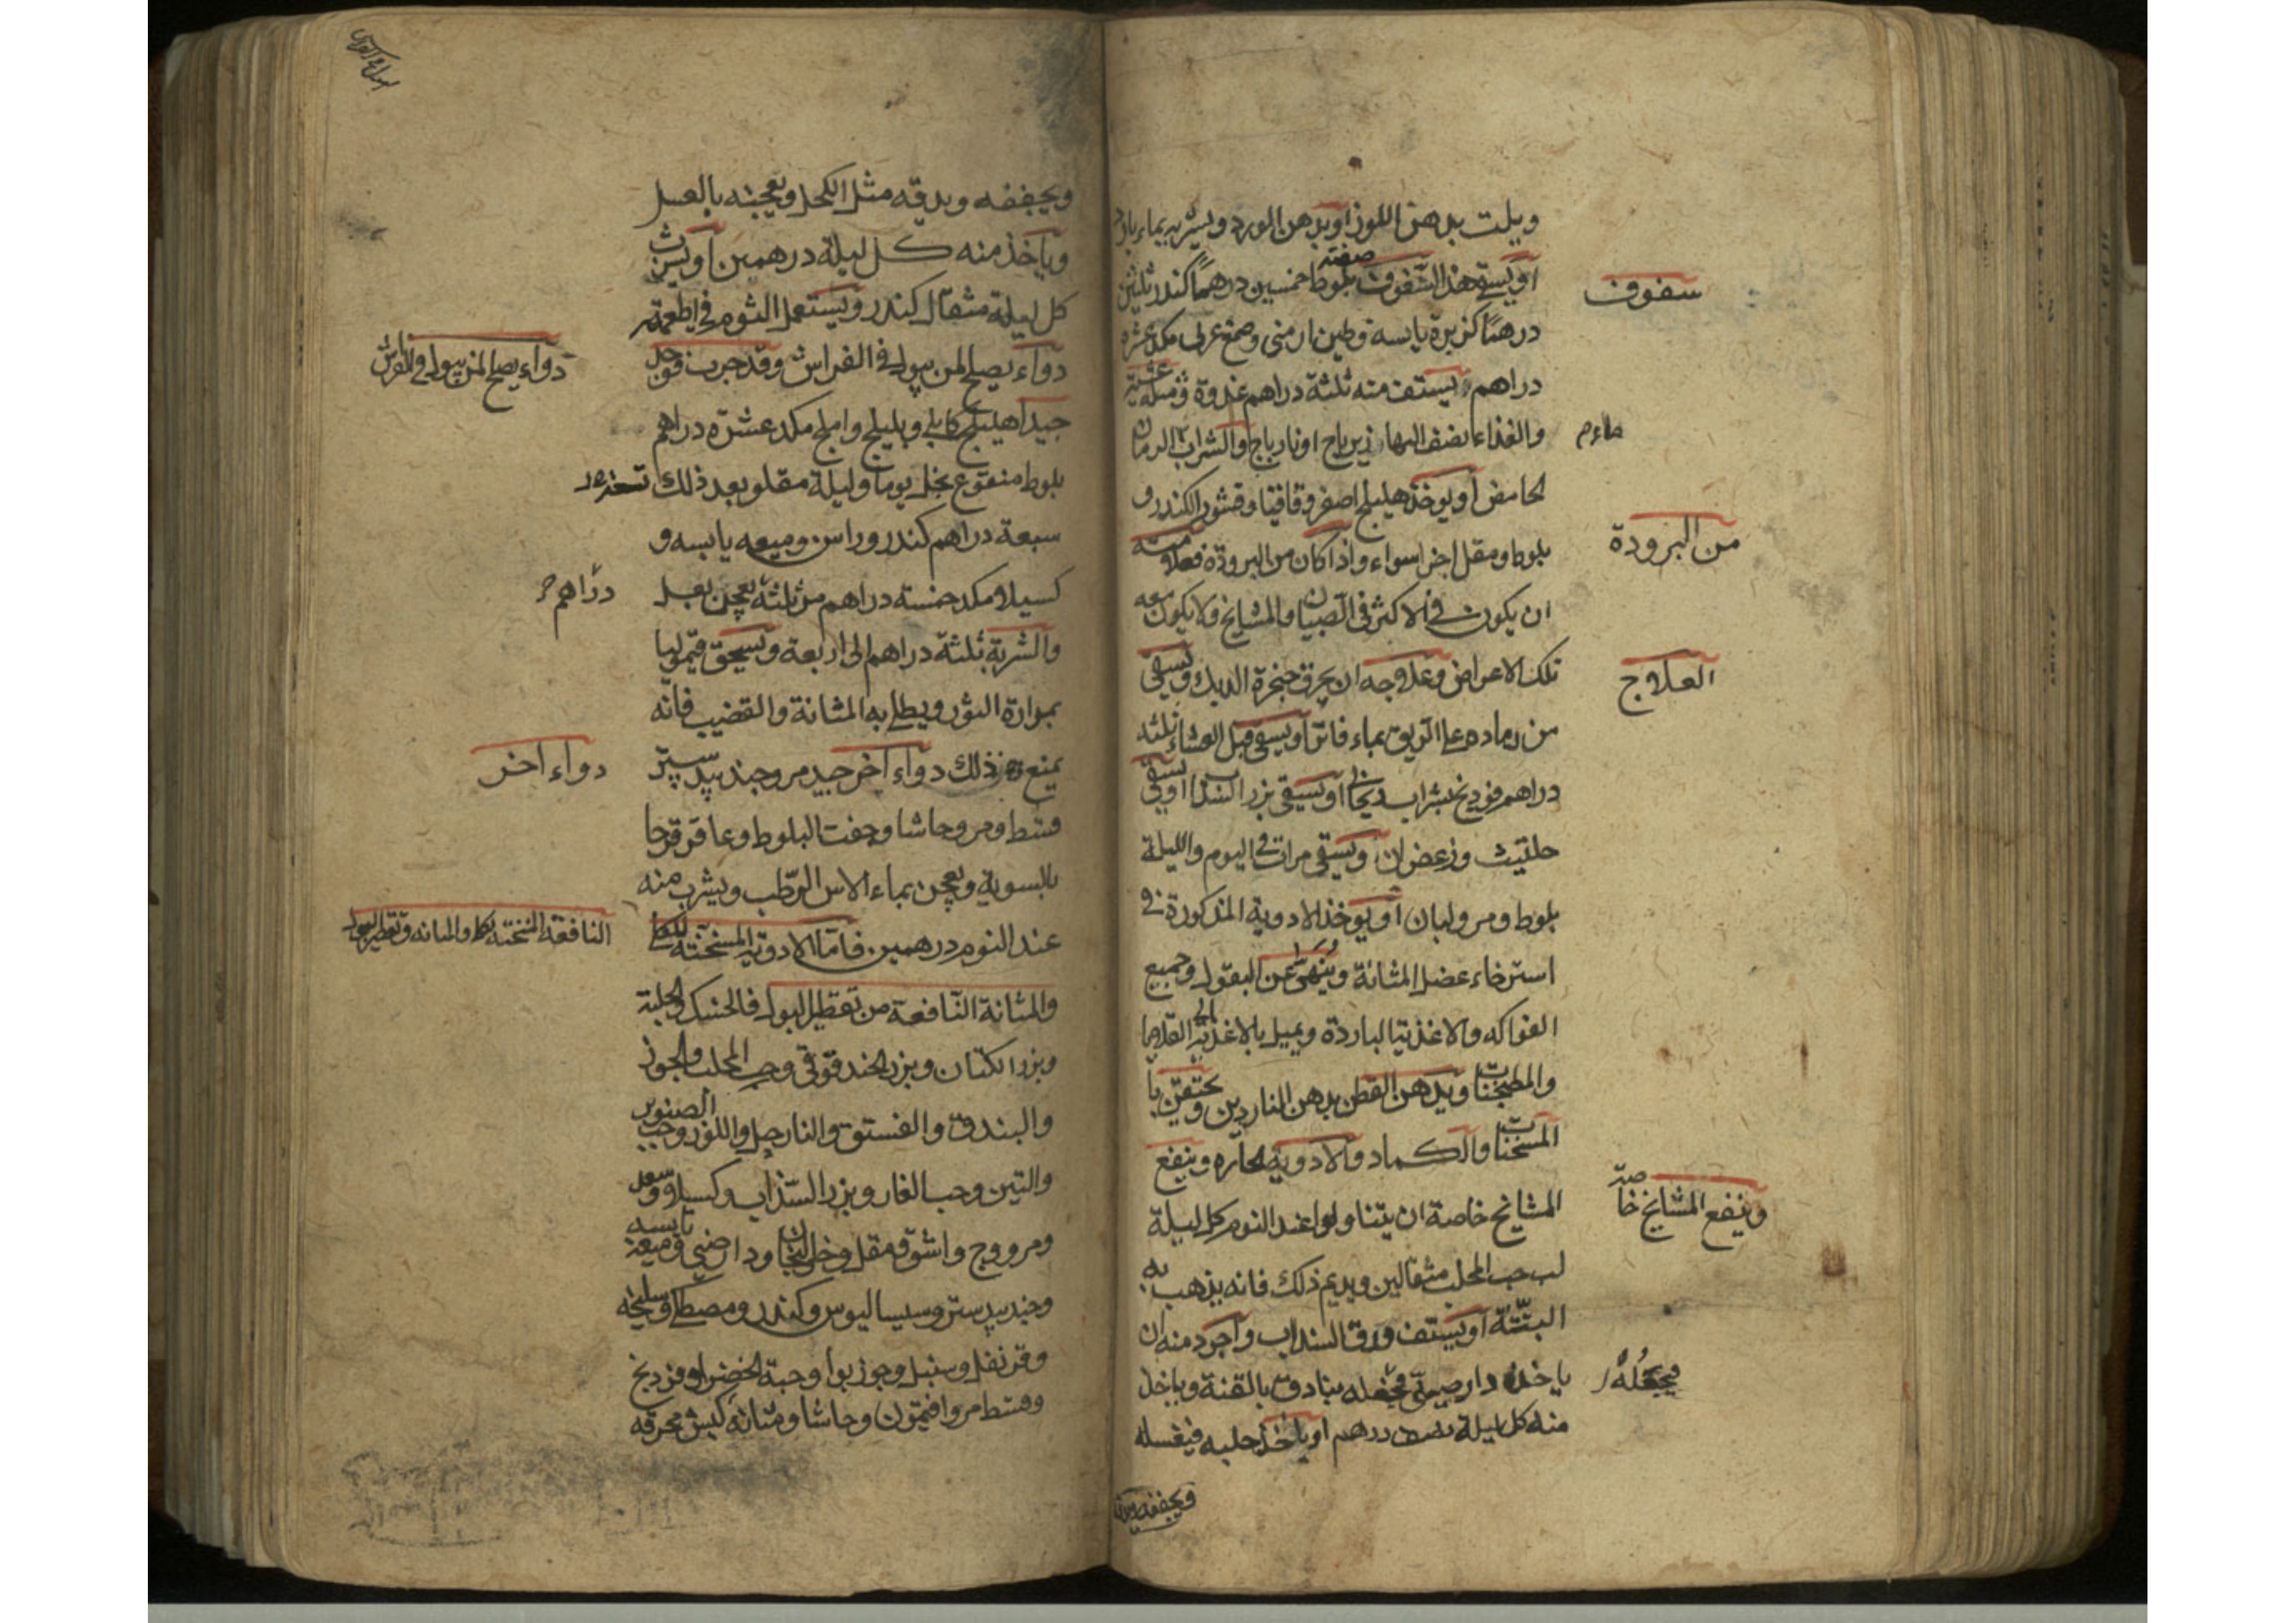 ويلت بدهن اللوز اوبدهن الورد ويشربه بماء بارد
سفوف
أو يستف هذا السفوف صفته بلوط خمسين درهمًا كندر ثلثين
درهمًا كزبرة يابسة وطين ارمنى وصمغ عربى مكد عشرة
دراهم يستف منه ثلثة دراهم غدوة ومثله عشية
والغذاء ايضف اليها زيرباج او نارباج والشراب الرمان
الحامض أو يوخذ هليلج اصفر وقاقيا وقشور الكندر و
من البرودة
بلوط ومقل اجزا سواء واذا كان من البرودة فعلامته
ان يكون في الاكثر فى الصبيان والمشايخ ولا يكون معه
العلاج
تلك الاعراض وعلاجه ان يحرق حنجرة الديك ويسقى
من رماده على الريق بماء فاتر أو يسقى قبل العشاء ثلثة
دراهم فودنج بشراب ريحانى أو يسقى بزر السذاب أو يسقى
حلتيت وزعفران ويسقى مرات فى اليوم والليلة
بلوط ومر ولبان أو يوخذ الادوية المذكورة فى
استرخاء عضل المثانة وينهى عن البقول وجميع
الفواكه والاغذية الباردة ويميل بالاغذية الى القلايا
والمطجنات ويدهن القطن بدهن الناردين ويحتقن با
المسخنات والكماد والادوية الحاره وينفع
وينفع المشايخ خاصة
المشايخ خاصة ان يتناولوا عند النوم كل ليلة
لب حب المحلب مثقالين ويديم ذلك فانه يذهب به
البتّة أو يستف ورق السداب وأجود منه ان
فيجعله
ياخذ دارصينى فيجعله بنادق بالقنة وياخذ
منه كل ليلة نصف درهم او ياخذ حلبه فيغسله
ويجففه
ويجففه ويدقه مثل الكحل ويعجنه بالعسل
وياخذ منه كل ليلة درهمين أو يشرب
كل ليلة مثقال كندر ويستعمل الثوم فى اطعمته
دواء يصلح لمن يبول فى الفراش
دواء يصلح لمن يبول فى الفراش وقد جرب فوجد
جيدا هليلج كابلى وبليلج واملج مكد عشرة دراهم
بلوط منقوع بخل يوما وليلة مقلو بعد ذلك
سبعة دراهم كندر وراسن وميعه يابسه و
دراهم
كسيلا مكد خمسة دراهم مر ثلثة يعجن بعسل
والشربة ثلثة دراهم الى اربعة ويسحق قيموليا
بمرارة الثور ويطلى به المثانة والقضيب فانه
دواء اخر
يمنع ذلك دواء اخر جيد مر وجندبيدستر
قسط ومر وحاشا وجفت البلوط وعاقرقرحا
بالسوية ويعجن بماء الاس الرطب ويشرب منه
النافعة المسخنة للكلا والمثانه وتقطير البول
عند النوم درهمين فاما الادوية المسخنة للكلى
والمثانة النافعة من تقطير البول فالحسك والحلبة
وبزر الكتان وبزر الحندقوقى وحب المحلب والجوز
والبندق والفستق والنارجيل واللوز وحب الصنوبر
والتين وحب الغار وبزر السذاب وكسيلا وسعد
ومر ووج واشق ومقل وخولنجان ودارصينى وميعة يابسه
وجندبيدستر وسيساليوس وكندر ومصطكى وسليخه
وقرنفل وسنبل وجوزبوا وحبة الخضرا وفودنج
وقسط مر وافتيمون وحاشا ومثانة كبش محرقه